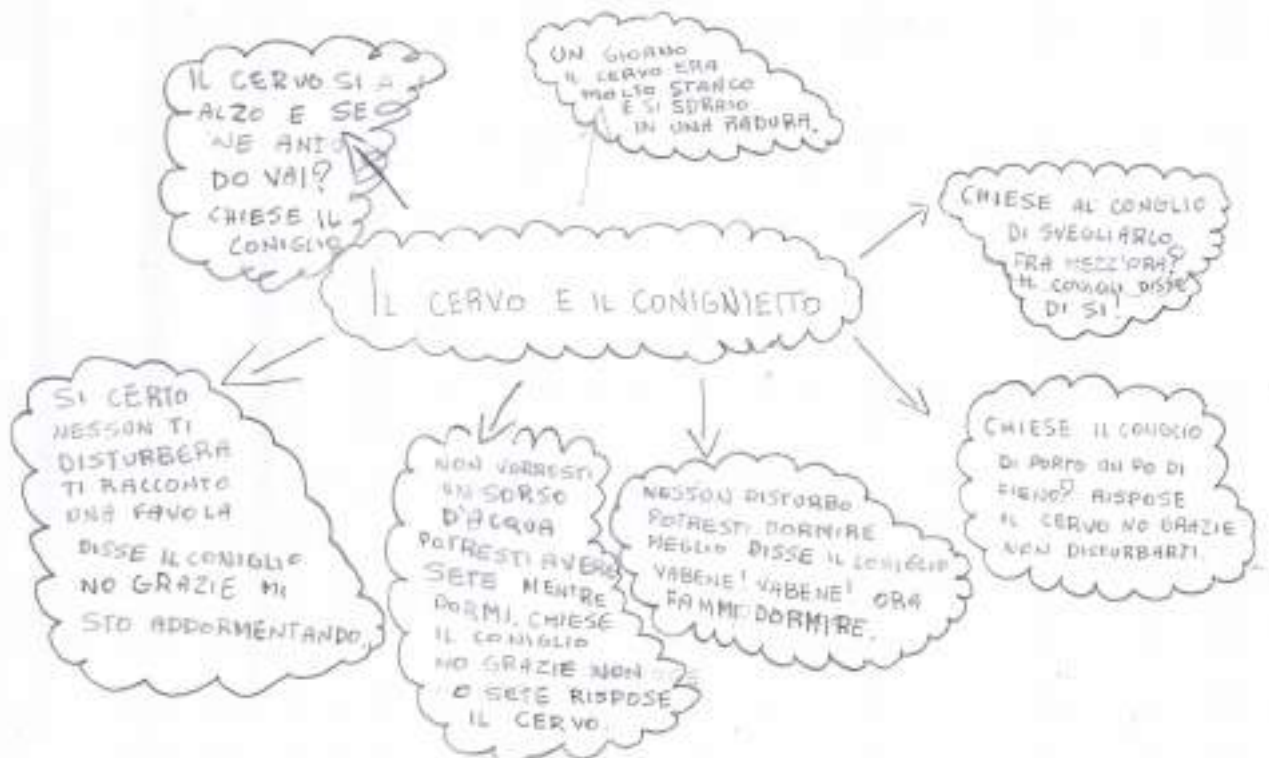 IL CERVO E IL CONIGNIETTO
UN GIORNO
IL CERVO ERA
MOLTO STANCO
E SI SDRAIO
IN UNA RADURA.
CHIESE AL CONGLIO
DI SVEGLIARLO
FRA MEZZ'ORA?
IL CONIGLI DISSE
DI SI!
CHIESE IL CONIGLIO
DI PORTO UN PO DI
FIENO? RISPOSE
IL CERVO NO GRAZIE
NON DISTURBARTI.
NESSON DISTURBO
POTRESTI DORMIRE
MEGLIO DISSE IL CONIGLIO
VABENE! VABENE! ORA
FAMMI DORMIRE.
NON VORRESTI
UN SORSO
D'ACQUA
POTRESTI AVERE
SETE MENTRE
DORMI. CHIESE
IL CONIGLIO
NO GRAZIE NON
O SETE RISPOSE
IL CERVO
SI CERTO
NESSON TI
DISTURBERA
TI RACCONTO
UNA FAVOLA
DISSE IL CONIGLIO
NO GRAZIE MI
STO ADDORMENTANDO.
IL CERVO SI
ALZO E SE
NE ANDO
DO VAI?
CHIESE IL
CONIGLIO